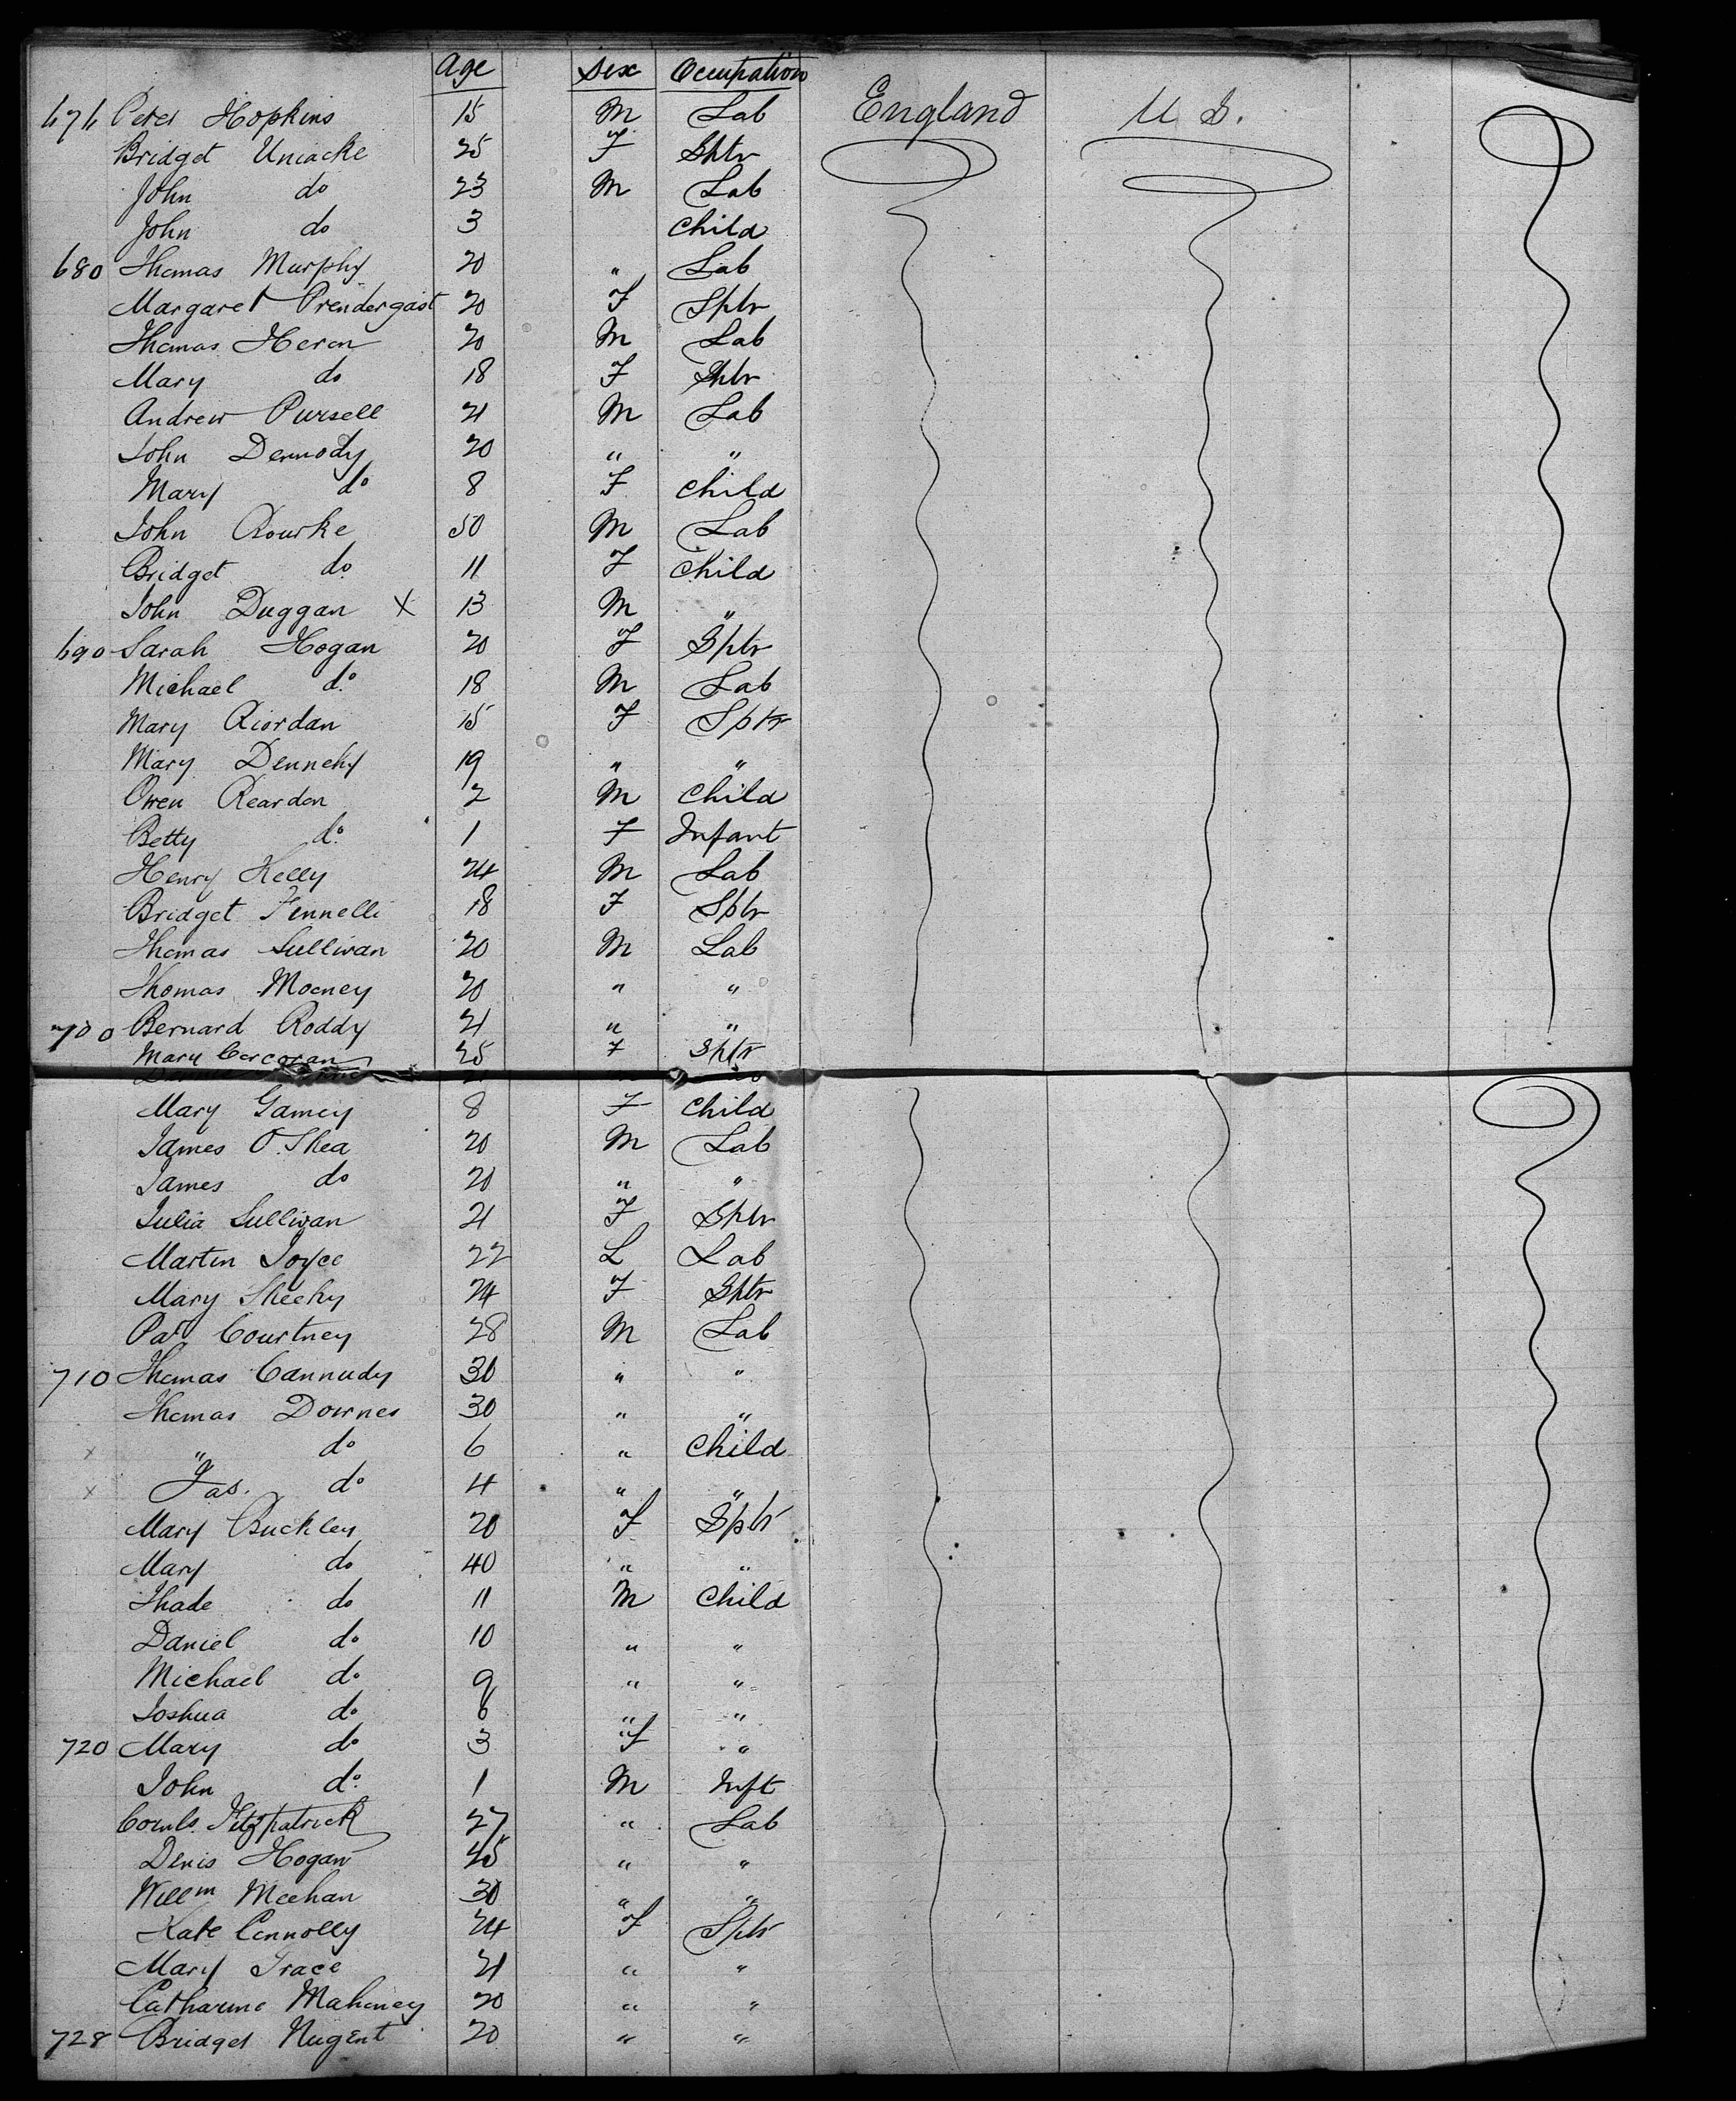 Age Sex Occupation
676 Peter Hopkins 15 M Lab England U S.
Bridget Uniacke 25 F Sptr
John do 23 M Lab
John do 3 Child
680 Thomas Murphy 20 " Lab
Margaret Prendergast 20 F Sptr
Thomas Heron 20 M Lab
Mary do 18 F Sptr
Andrew Pursell 21 M Lab
John Dermody 20 " "
Mary do 8 F Child
John Rourke 50 M Lab
Bridget do 11 F Child
John Duggan X 13 M "
690 Sarah Hogan 20 F Sptr
Michael do 18 M Lab
Mary Riordan 15 F Sptr
Mary Dennehy 19 " "
Owen Reardon 2 M Child
Betty do 1 F Infant
Henry Kelly 24 M Lab
Bridget Fennelli 18 F Sptr
Thomas Sullivan 20 M Lab
Thomas Mooney 20 " "
700 Bernard Roddy 21 " "
Mary Corcoran 25 F Sptr
Mary Gamey 8 F Child
James O'Shea 20 M Lab
James do 20 " "
Julia Sullivan 21 F Sptr
Martin Joyce 22 L Lab
Mary Sheehy 24 F Sptr
Pat Courtney 28 M Lab
710 Thomas Cannudy 30 " "
Thomas Downes 30 " "
x " do 6 " Child
x Jas. do 4 " "
Mary Buckley 20 F Sptr
Mary do 40 " "
Thade do 11 M Child
Daniel do 10 " "
Michael do 9 " "
Joshua do 6 " "
720 Mary do 3 F "
John do 1 M Inft
Cornls. Fitzpatrick 27 " Lab
Denis Hogan 45 " "
Willm Meehan 30 " "
Kate Connolly 24 F Sptr
Mary Grace 21 " "
Catharine Mahoney 20 " "
728 Bridget Nugent 20 " "